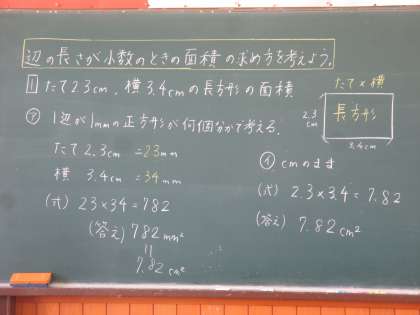 辺の長さが小数のときの面積の求め方を考えよう。
1 たて2.3cm、横3.4cmの長方形の面積
たて×横
長方形
2.3cm
3.4cm
ア 1辺が1mmの正方形が何個分かで考える。
たて 2.3cm = 23mm
横 3.4cm = 34mm
(式) 23×34=782
(答え) 782mm²
॥
7.82cm²
イ cmのまま
(式) 2.3×3.4=7.82
(答え) 7.82cm²